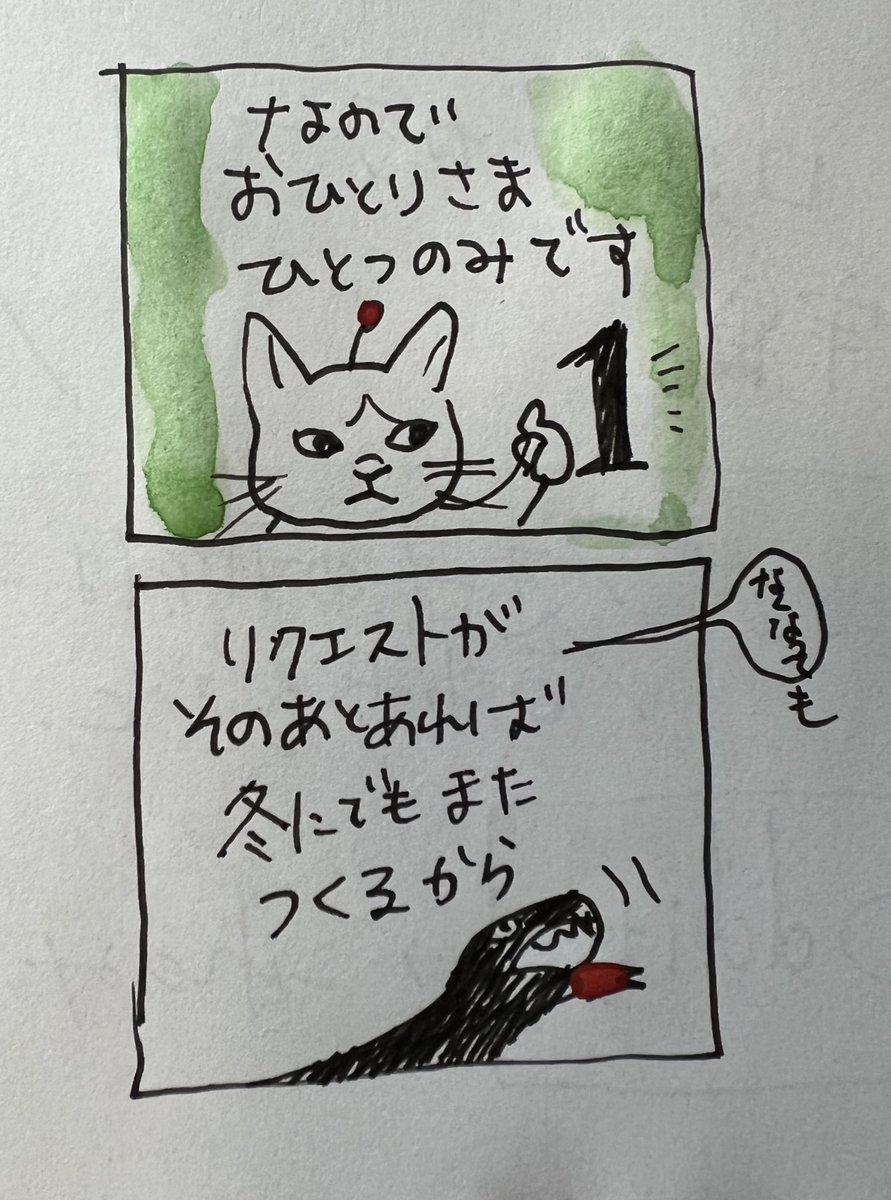 なので
おひとりさま
ひとつのみです
1
リクエストが
そのあとあれば
冬にでもまた
つくるから